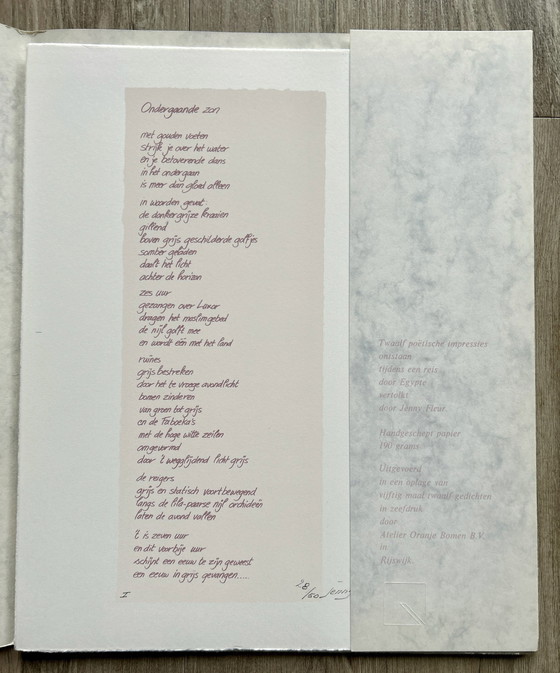 Ondergaande zon
met gouden voeten
strijk je over het water
en je betoverende dans
in het ondergaan
is meer dan gloed alleen
in woorden gevat:
de donkergrijze kraaien
gillend
boven grijs geschilderde golfjes
somber geladen
daalt het licht
achter de horizon
zes uur
gezangen over Luxor
dragen het moslimgebed
de nijl golft mee
en wordt één met het land
ruïnes
grijs bestreken
door het te vroege avondlicht
bomen zinderen
van groen tot grijs
en de
met de hoge witte zeilen
omgevormd
door 't wegglijdend licht grijs
de reigers
grijs en statisch voortbewegend
langs de lila-paarse nijl orchideeën
laten de avond vallen
't is zeven uur
en dit voorbije uur
schijnt een eeuw te zijn geweest
een eeuw in grijs gevangen.....
I
28/60 Jenny
Twaalf poëtische impressies
ontstaan
tijdens een reis
door Egypte
vertolkt
door Jenny Fleur.
Handgeschept papier
190 grams
Uitgevoerd
in een oplage van
vijftig maal twaalf gedichten
in zeefdruk
door
Atelier Oranje Bomen B.V.
in
Rijswijk.